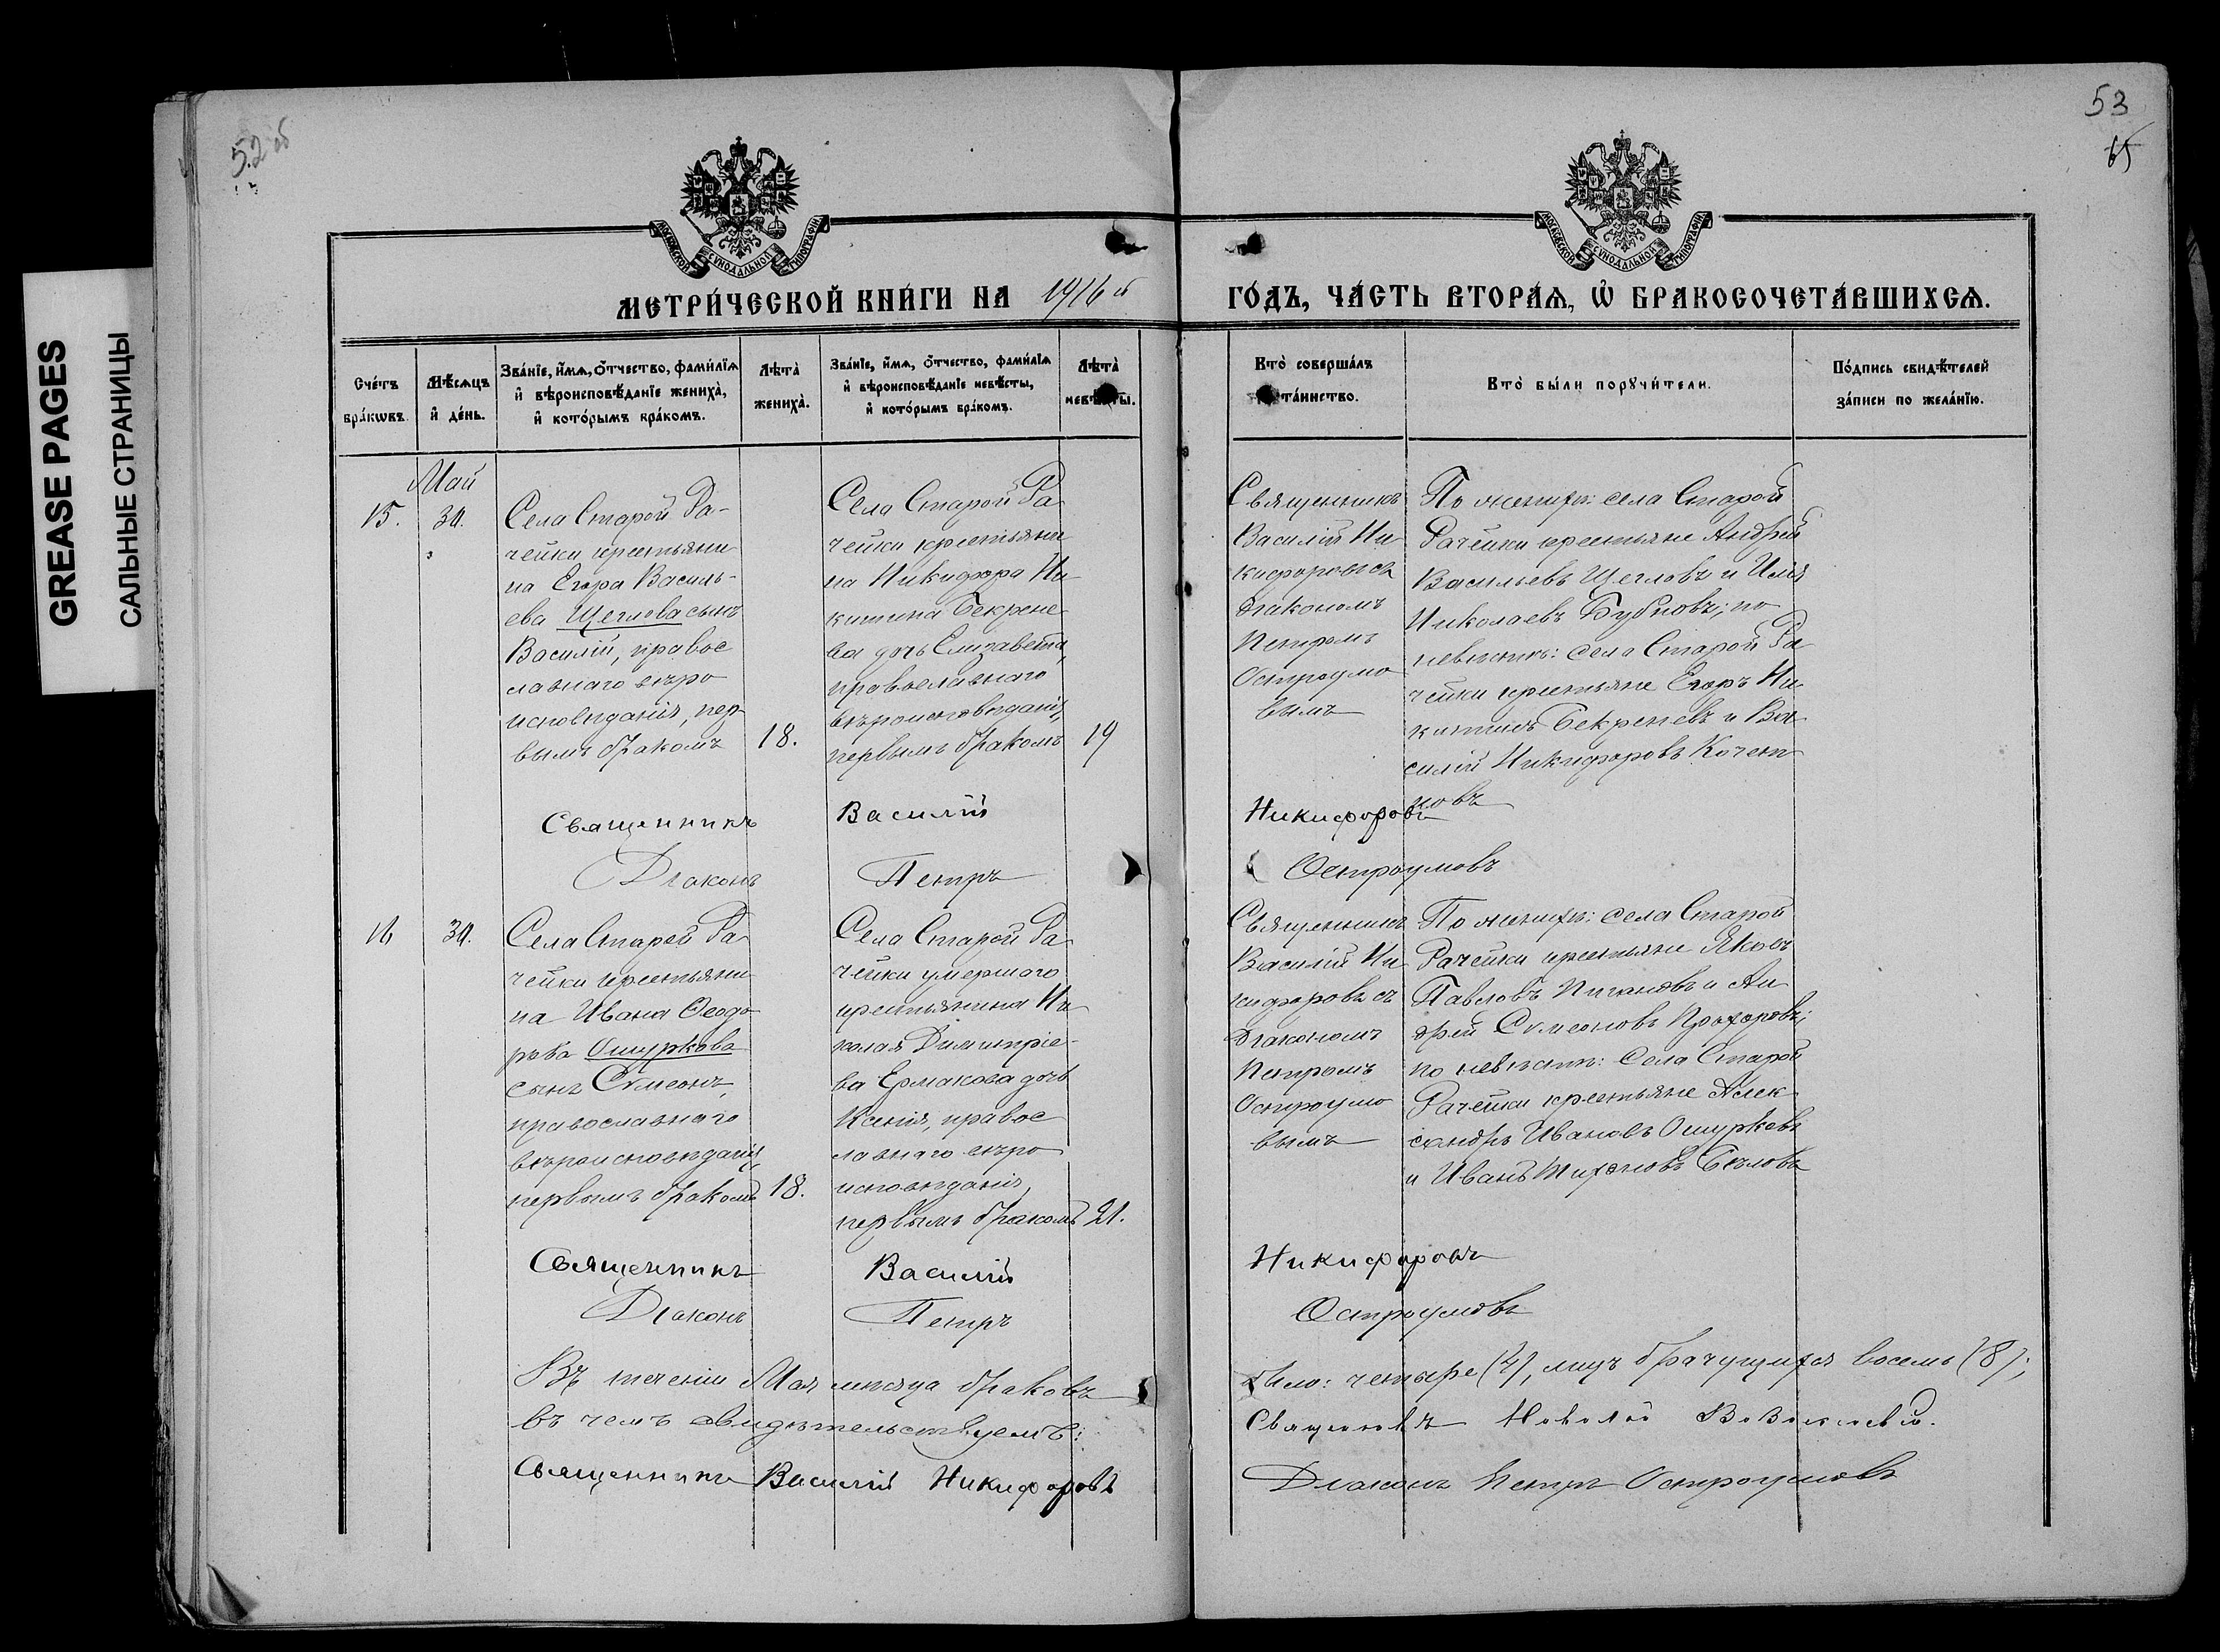 GREASE PAGES
САЛЬНЫЕ СТРАНИЦЫ
52 об
53
МОСКОВСКОЙ СѴНОДАЛЬНОЙ ТИПОГРАФІИ
МОСКОВСКОЙ СѴНОДАЛЬНОЙ ТИПОГРАФІИ
МЕТРИ́ЧЕСКОЙ КНИ́ГИ НА 1916 й ГО́ДЪ, ЧА́СТЬ ВТОРА́Ѧ, Ѽ БРАКОСОЧЕТА́ВШИХСѦ.
Сче́тъ бра́кѡвъ.
Мѣ́сѧцъ и҆ де́нь.
Зва́нїе, и҆́мѧ, ѻ҆́тчество, фами́лїѧ
и҆ вѣроисповѣ́данїе жениха̀,
и҆ кото́рымъ бра́комъ.
Лѣта̀ жениха̀.
Зва́нїе, и҆́мѧ, ѻ҆́тчество, фами́лїѧ
и҆ вѣроисповѣ́данїе невѣ́сты,
и҆ кото́рымъ бра́комъ.
Лѣта̀ невѣ́сты.
Кто̀ соверша́лъ
та́инство.
Кто̀ бы́ли порꙋчи́тели.
По́дпись свидѣ́телей
за́писи по жела́нїю.
Май
15.
30.
Села Старой Ра-
чейки крестьяни
на Егора Василь-
ева Щеглова сынъ
Василій, правос
лавнаго вѣро
исповѣданія, пер
вымъ бракомъ
18.
Села Старой Ра
чейки крестьяни
на Никифора Ни
китина Бекрене
ва дочь Елизавета,
православнаго
вѣроисповѣданія,
первымъ бракомъ
19
Священникъ
Василій Ни
кифоровъ съ
діакономъ
Петромъ
Остроумо
вымъ
По женихѣ: села Старой
Рачейки крестьяне Андрей
Васильевъ Щегловъ и Илья
Николаевъ Бубновъ; по
невѣстѣ: села Старой Ра
чейки крестьяне Егоръ Ни
китинъ Бекреневъ и Ва
силій Никифоровъ Кочет
ковъ
Священникъ Василій Никифоровъ
Діаконъ Петръ Остроумовъ
16
30.
Села Старой Ра
чейки крестьяни
на Ивана Ѳеодо
рова Ошуркова
сынъ Сѵмеонъ,
православнаго
вѣроисповѣданія,
первымъ бракомъ
18.
Села Старой Ра
чейки умершаго
крестьянина Ни
колая Димитріе-
ва Ермакова дочь
Ксенія, правос
лавнаго вѣро
исповѣданія,
первымъ бракомъ
21.
Священникъ
Василій Ни
кифоровъ съ
діакономъ
Петромъ
Остроумо
вымъ
По женихѣ: села Старой
Рачейки крестьяне Яковъ
Павловъ и Ан
дрей Сѵмеоновъ Прохоровъ;
по невѣстѣ: Села Старой
Рачейки крестьяне Алек
сандръ Ивановъ Ошурковъ
и Иванъ Тихоновъ Бѣловъ
Священникъ Василій Никифоровъ
Діаконъ Петръ Остроумовъ
Въ теченіи Мая мѣсяца браковъ было: четыре (4), лицъ брачущихся восемь (8);
въ чемъ свидѣтельствуемъ:
Священникъ Николай
Священникъ Василій Никифоровъ
Діаконъ Петръ Остроумовъ